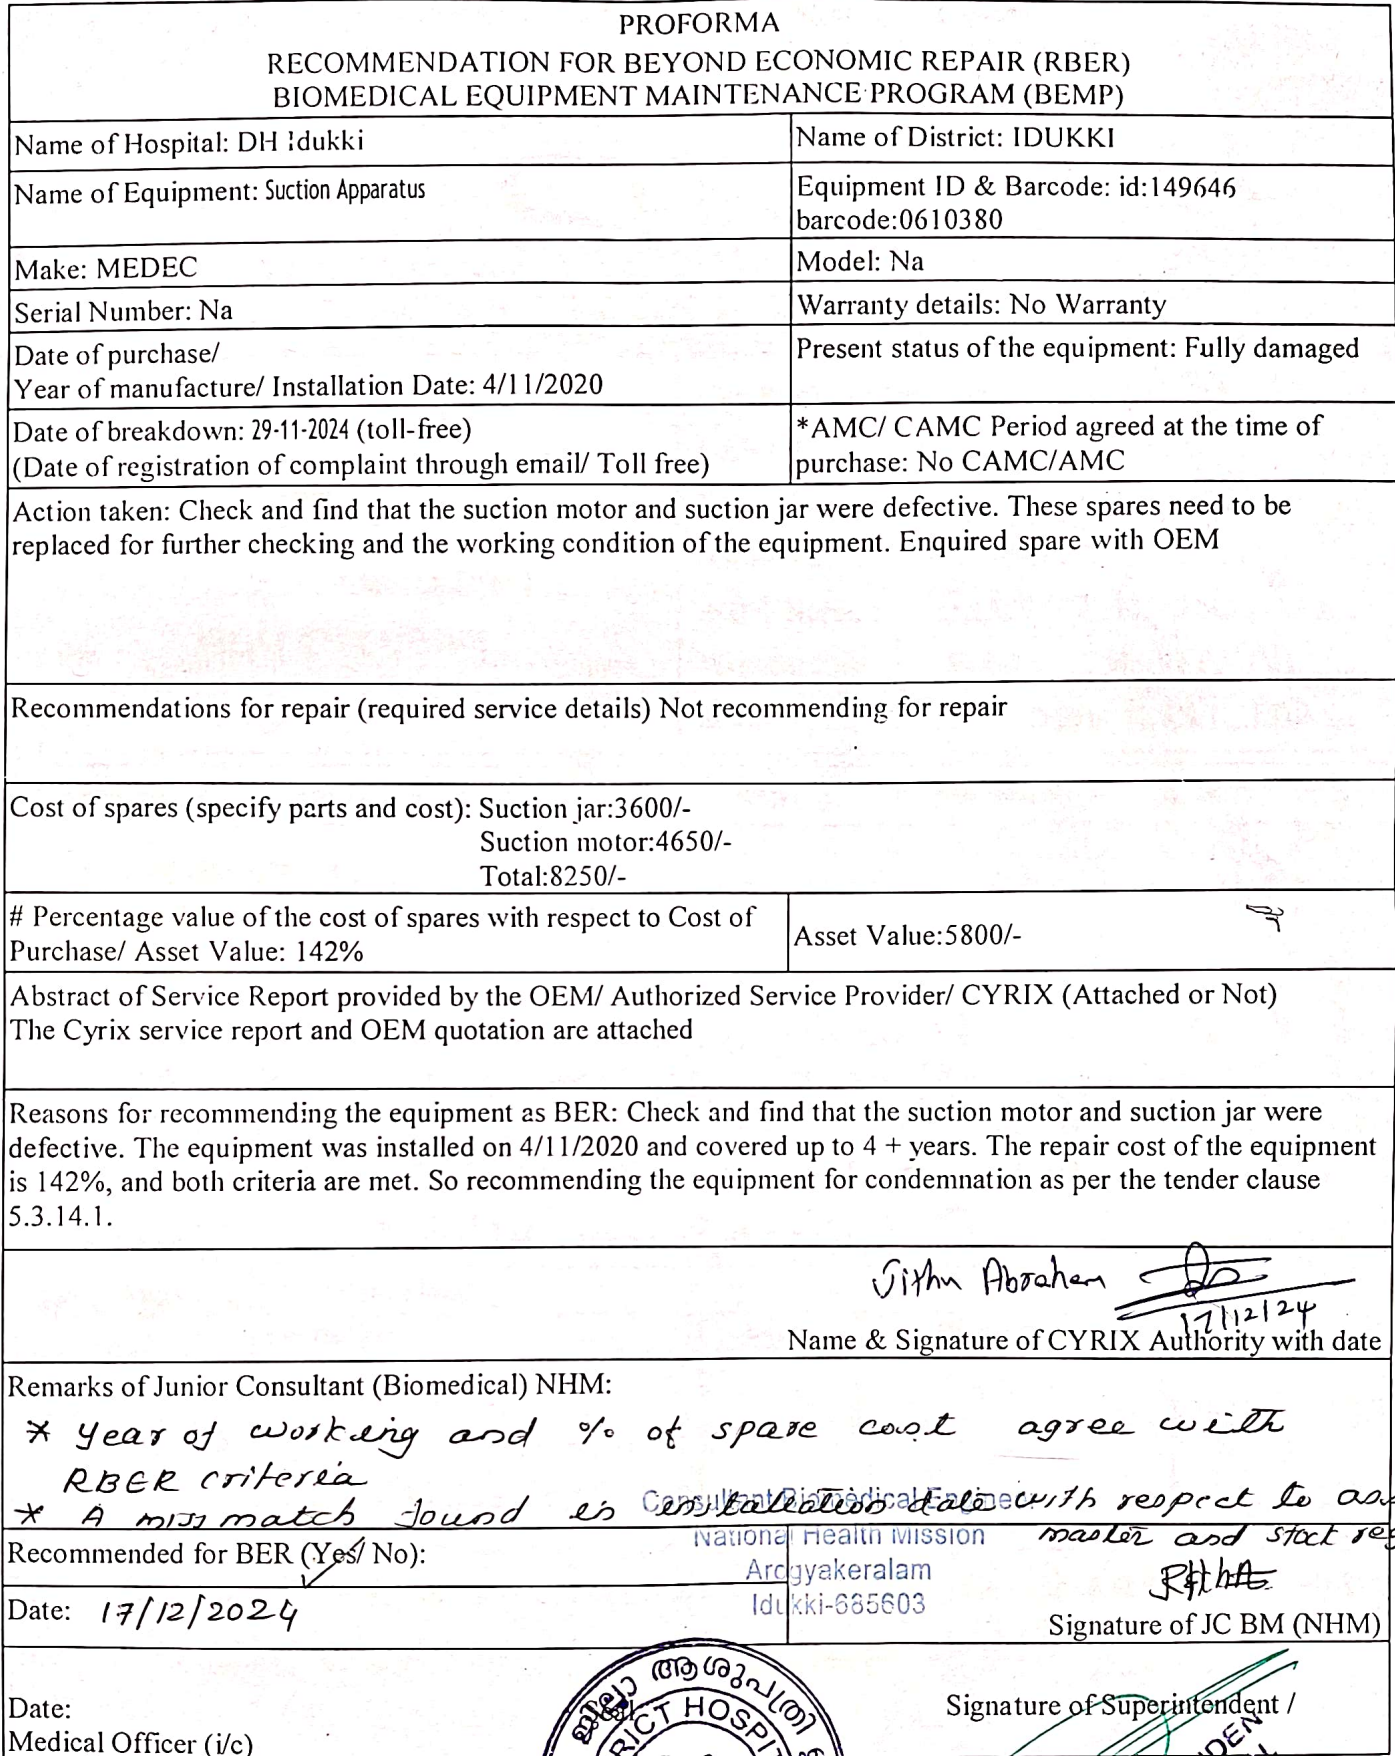 PROFORMA
RECOMMENDATION FOR BEYOND ECONOMIC REPAIR (RBER)
BIOMEDICAL EQUIPMENT MAINTENANCE PROGRAM (BEMP)
Name of Hospital: DH Idukki
Name of District: IDUKKI
Name of Equipment: Suction Apparatus
Equipment ID & Barcode: id:149646
barcode:0610380
Make: MEDEC
Model: Na
Serial Number: Na
Warranty details: No Warranty
Date of purchase/
Year of manufacture/ Installation Date: 4/11/2020
Present status of the equipment: Fully damaged
Date of breakdown: 29-11-2024 (toll-free)
(Date of registration of complaint through email/ Toll free)
*AMC/ CAMC Period agreed at the time of
purchase: No CAMC/AMC
Action taken: Check and find that the suction motor and suction jar were defective. These spares need to be
replaced for further checking and the working condition of the equipment. Enquired spare with OEM
Recommendations for repair (required service details) Not recommending for repair
Cost of spares (specify parts and cost): Suction jar:3600/-
Suction motor:4650/-
Total:8250/-
# Percentage value of the cost of spares with respect to Cost of
Purchase/ Asset Value: 142%
Asset Value:5800/-
Abstract of Service Report provided by the OEM/ Authorized Service Provider/ CYRIX (Attached or Not)
The Cyrix service report and OEM quotation are attached
Reasons for recommending the equipment as BER: Check and find that the suction motor and suction jar were
defective. The equipment was installed on 4/11/2020 and covered up to 4 + years. The repair cost of the equipment
is 142%, and both criteria are met. So recommending the equipment for condemnation as per the tender clause
5.3.14.1.
Jithu Abraham
17/12/24
Name & Signature of CYRIX Authority with date
Remarks of Junior Consultant (Biomedical) NHM:
* Year of working and % of spare cost agree with
RBER criteria
* A miss match found in installation date with respect to
master and stock
Consultant Biomedical
National Health Mission
Arogyakeralam
Idukki-685603
Recommended for BER (Yes/ No):
Date: 17/12/2024
Signature of JC BM (NHM)
Date:
Medical Officer (i/c)
ജില്ലാ ആശുപത്രി
Signature of Superintendent /